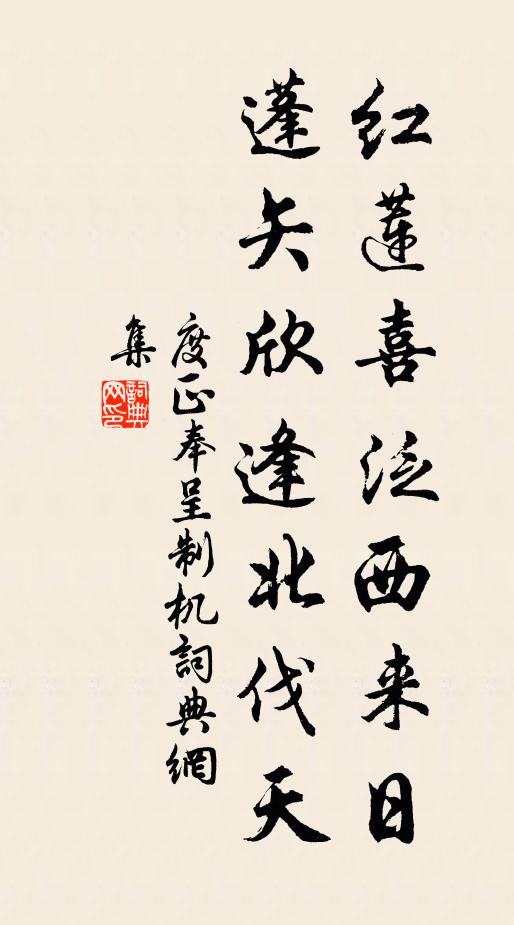 红蓮喜泛西来日
蓬矢欣逢北伐天
度正奉呈制机詞典網
集
詞典
网印